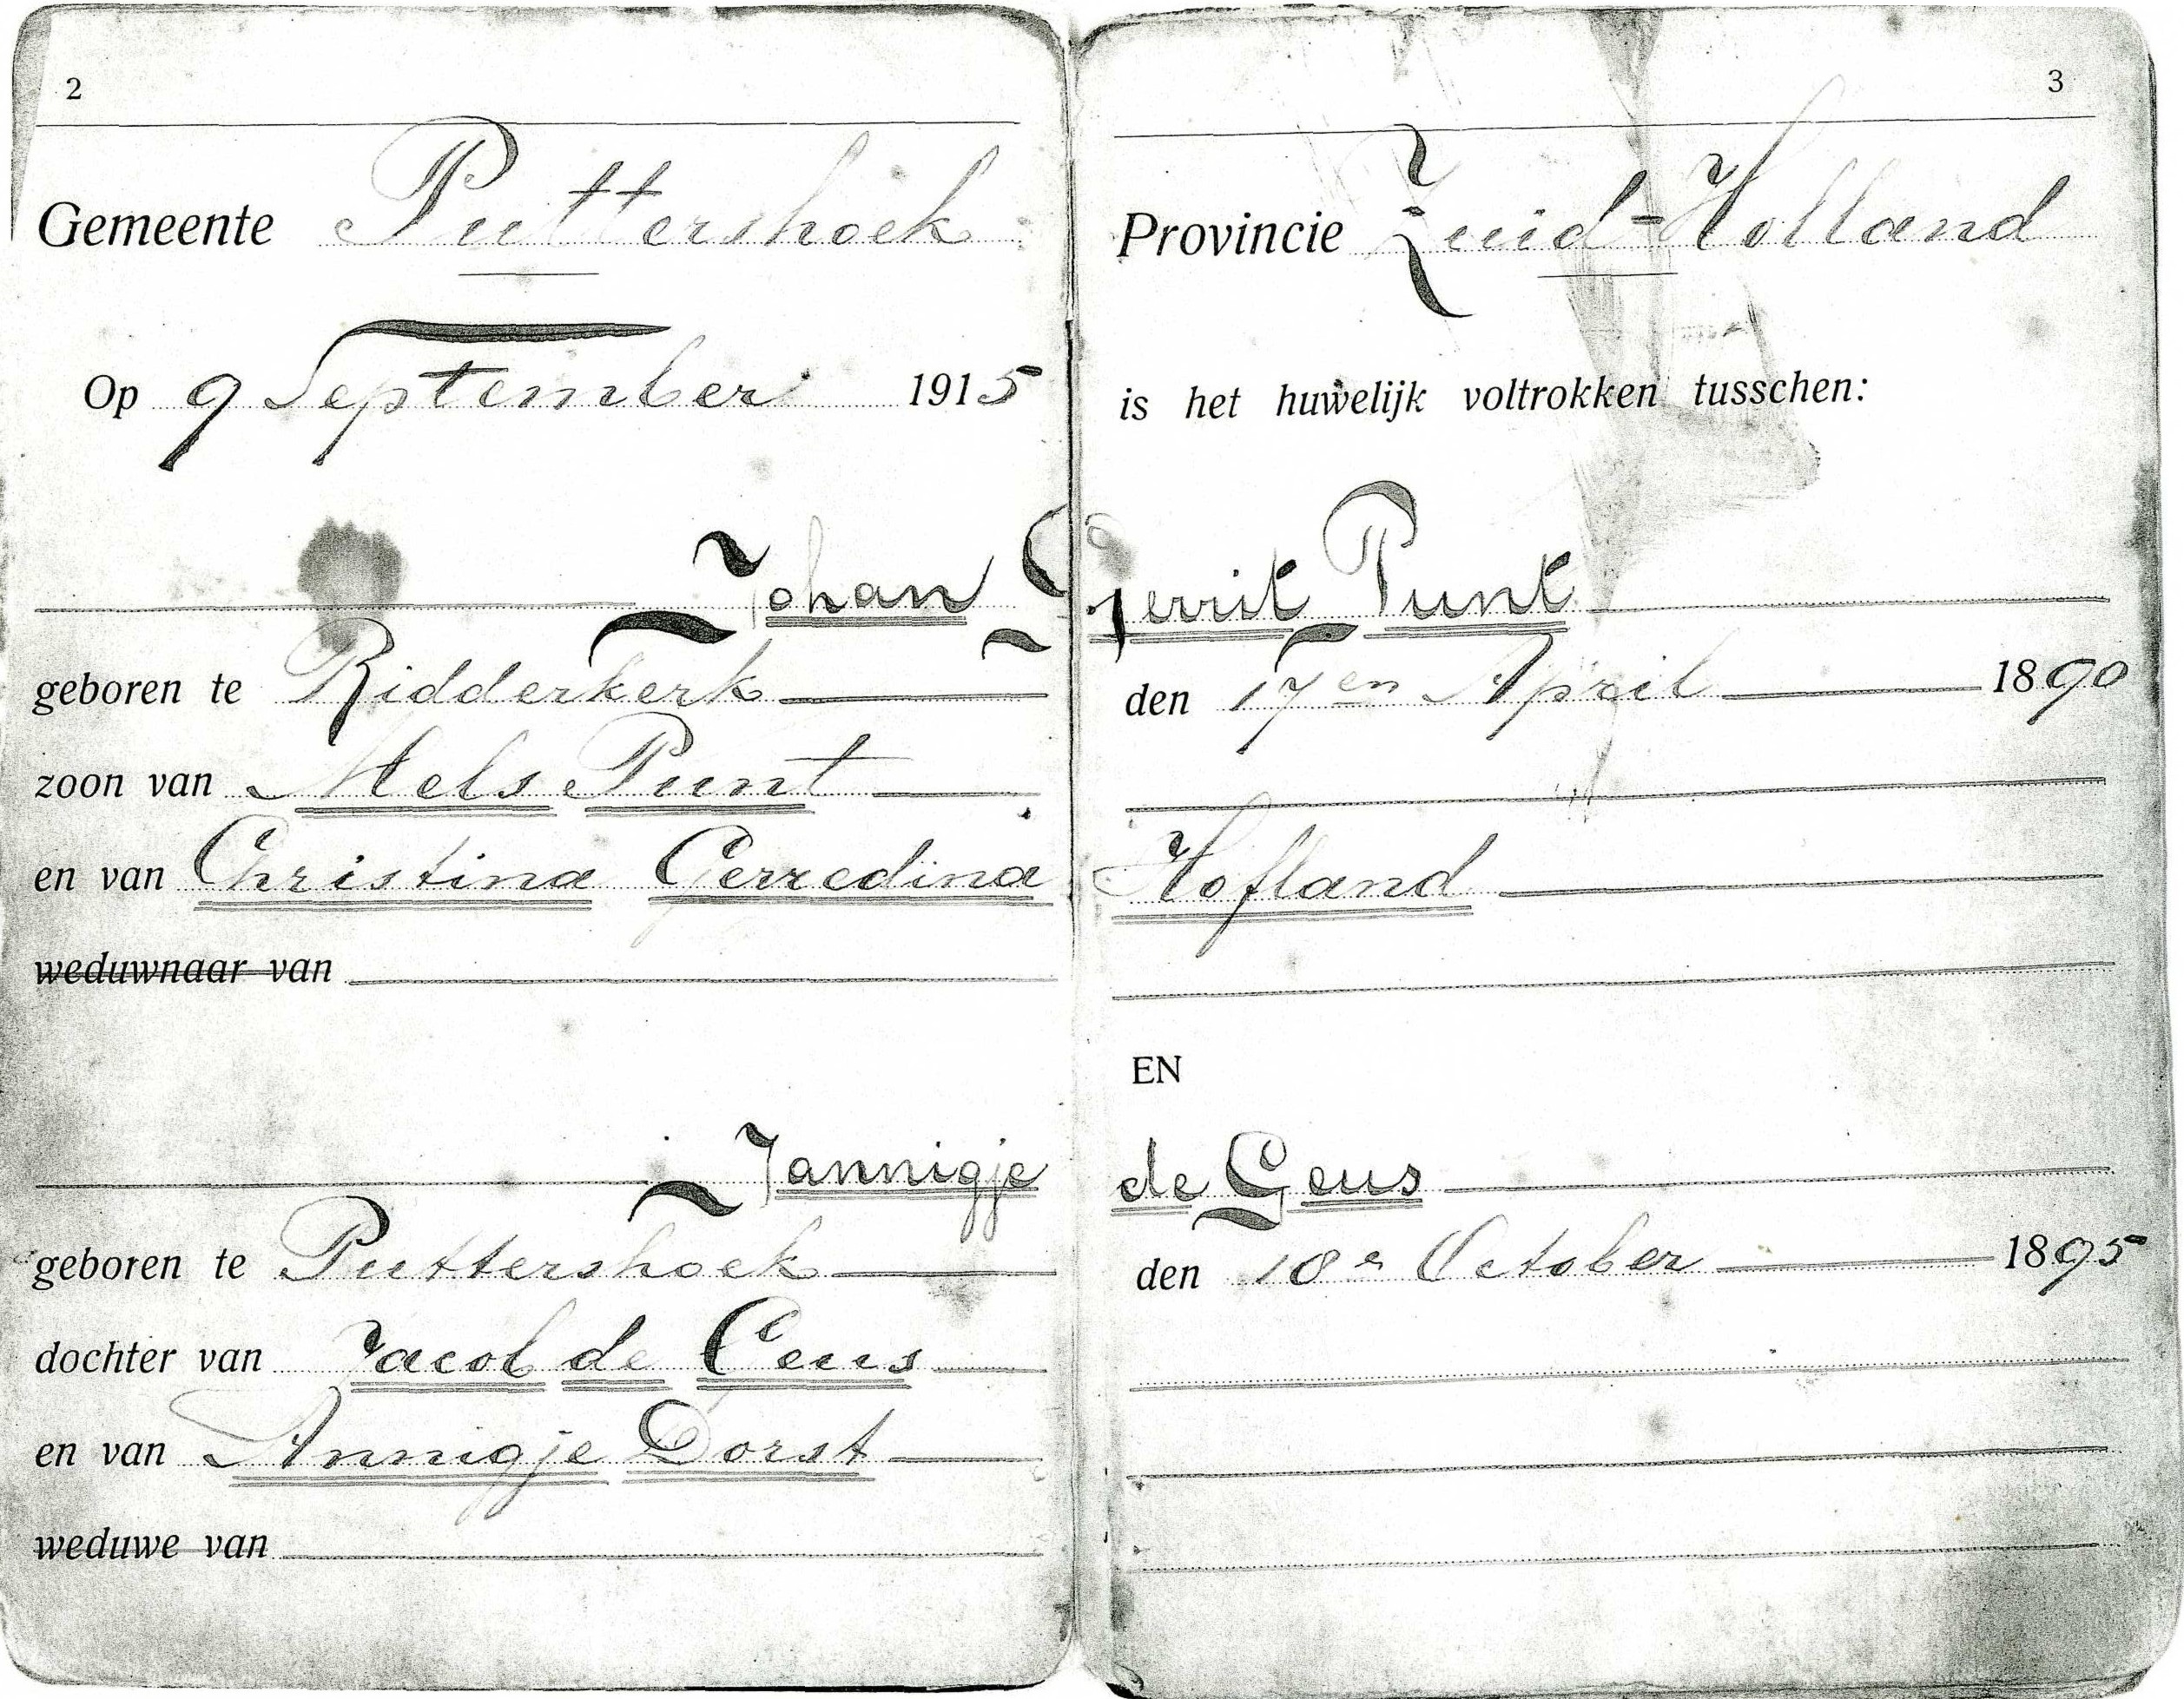 2
Gemeente Puttershoek
Op 9 September 1915
Johan
geboren te Ridderkerk
zoon van Mels Punt
en van Christina Gerredina
weduwnaar van
Jannigje
geboren te Puttershoek
dochter van Jacob de Geus
en van Annigje Dorst
weduwe van
3
Provincie Zuid-Holland
is het huwelijk voltrokken tusschen:
Gerrit Punt
den 17en April 1890
Hofland
EN
de Geus
den 10e October 1895